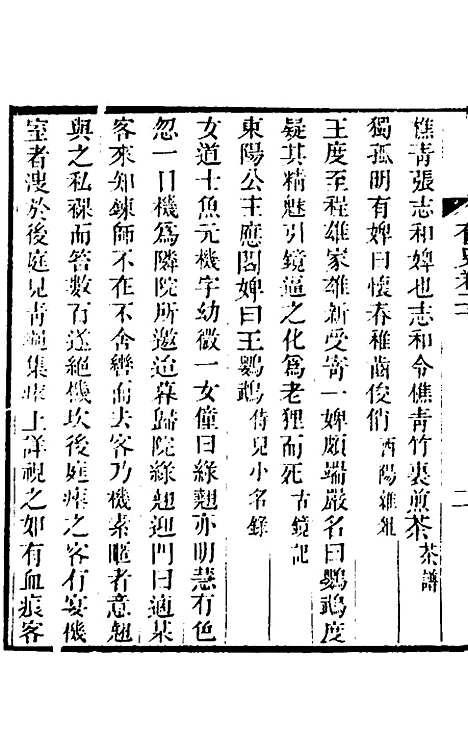 樵青張志和婢也志和令樵青竹裏煎茶茶譜
獨孤明有婢曰懷春稚齒俊俏酉陽雜俎
王度至程雄家雄新受寄一婢頗端嚴名曰鸚鵡度
疑其精魅引鏡逼之化爲老狸而死古鏡記
東陽公主應閤婢曰王鸚鵡侍兒小名錄
女道士魚元機字幼微一女僮曰綠翹亦明慧有色
忽一日機爲隣院所邀迨暮歸院綠翹迎門曰適某
客來知鍊師不在不舍轡而去客乃機素暱者意翹
與之私裸而笞數百遂絕機坎後庭瘞之客有宴機
室者溲於後庭見青蠅集瘞上詳視之如有血痕客
卷二
二